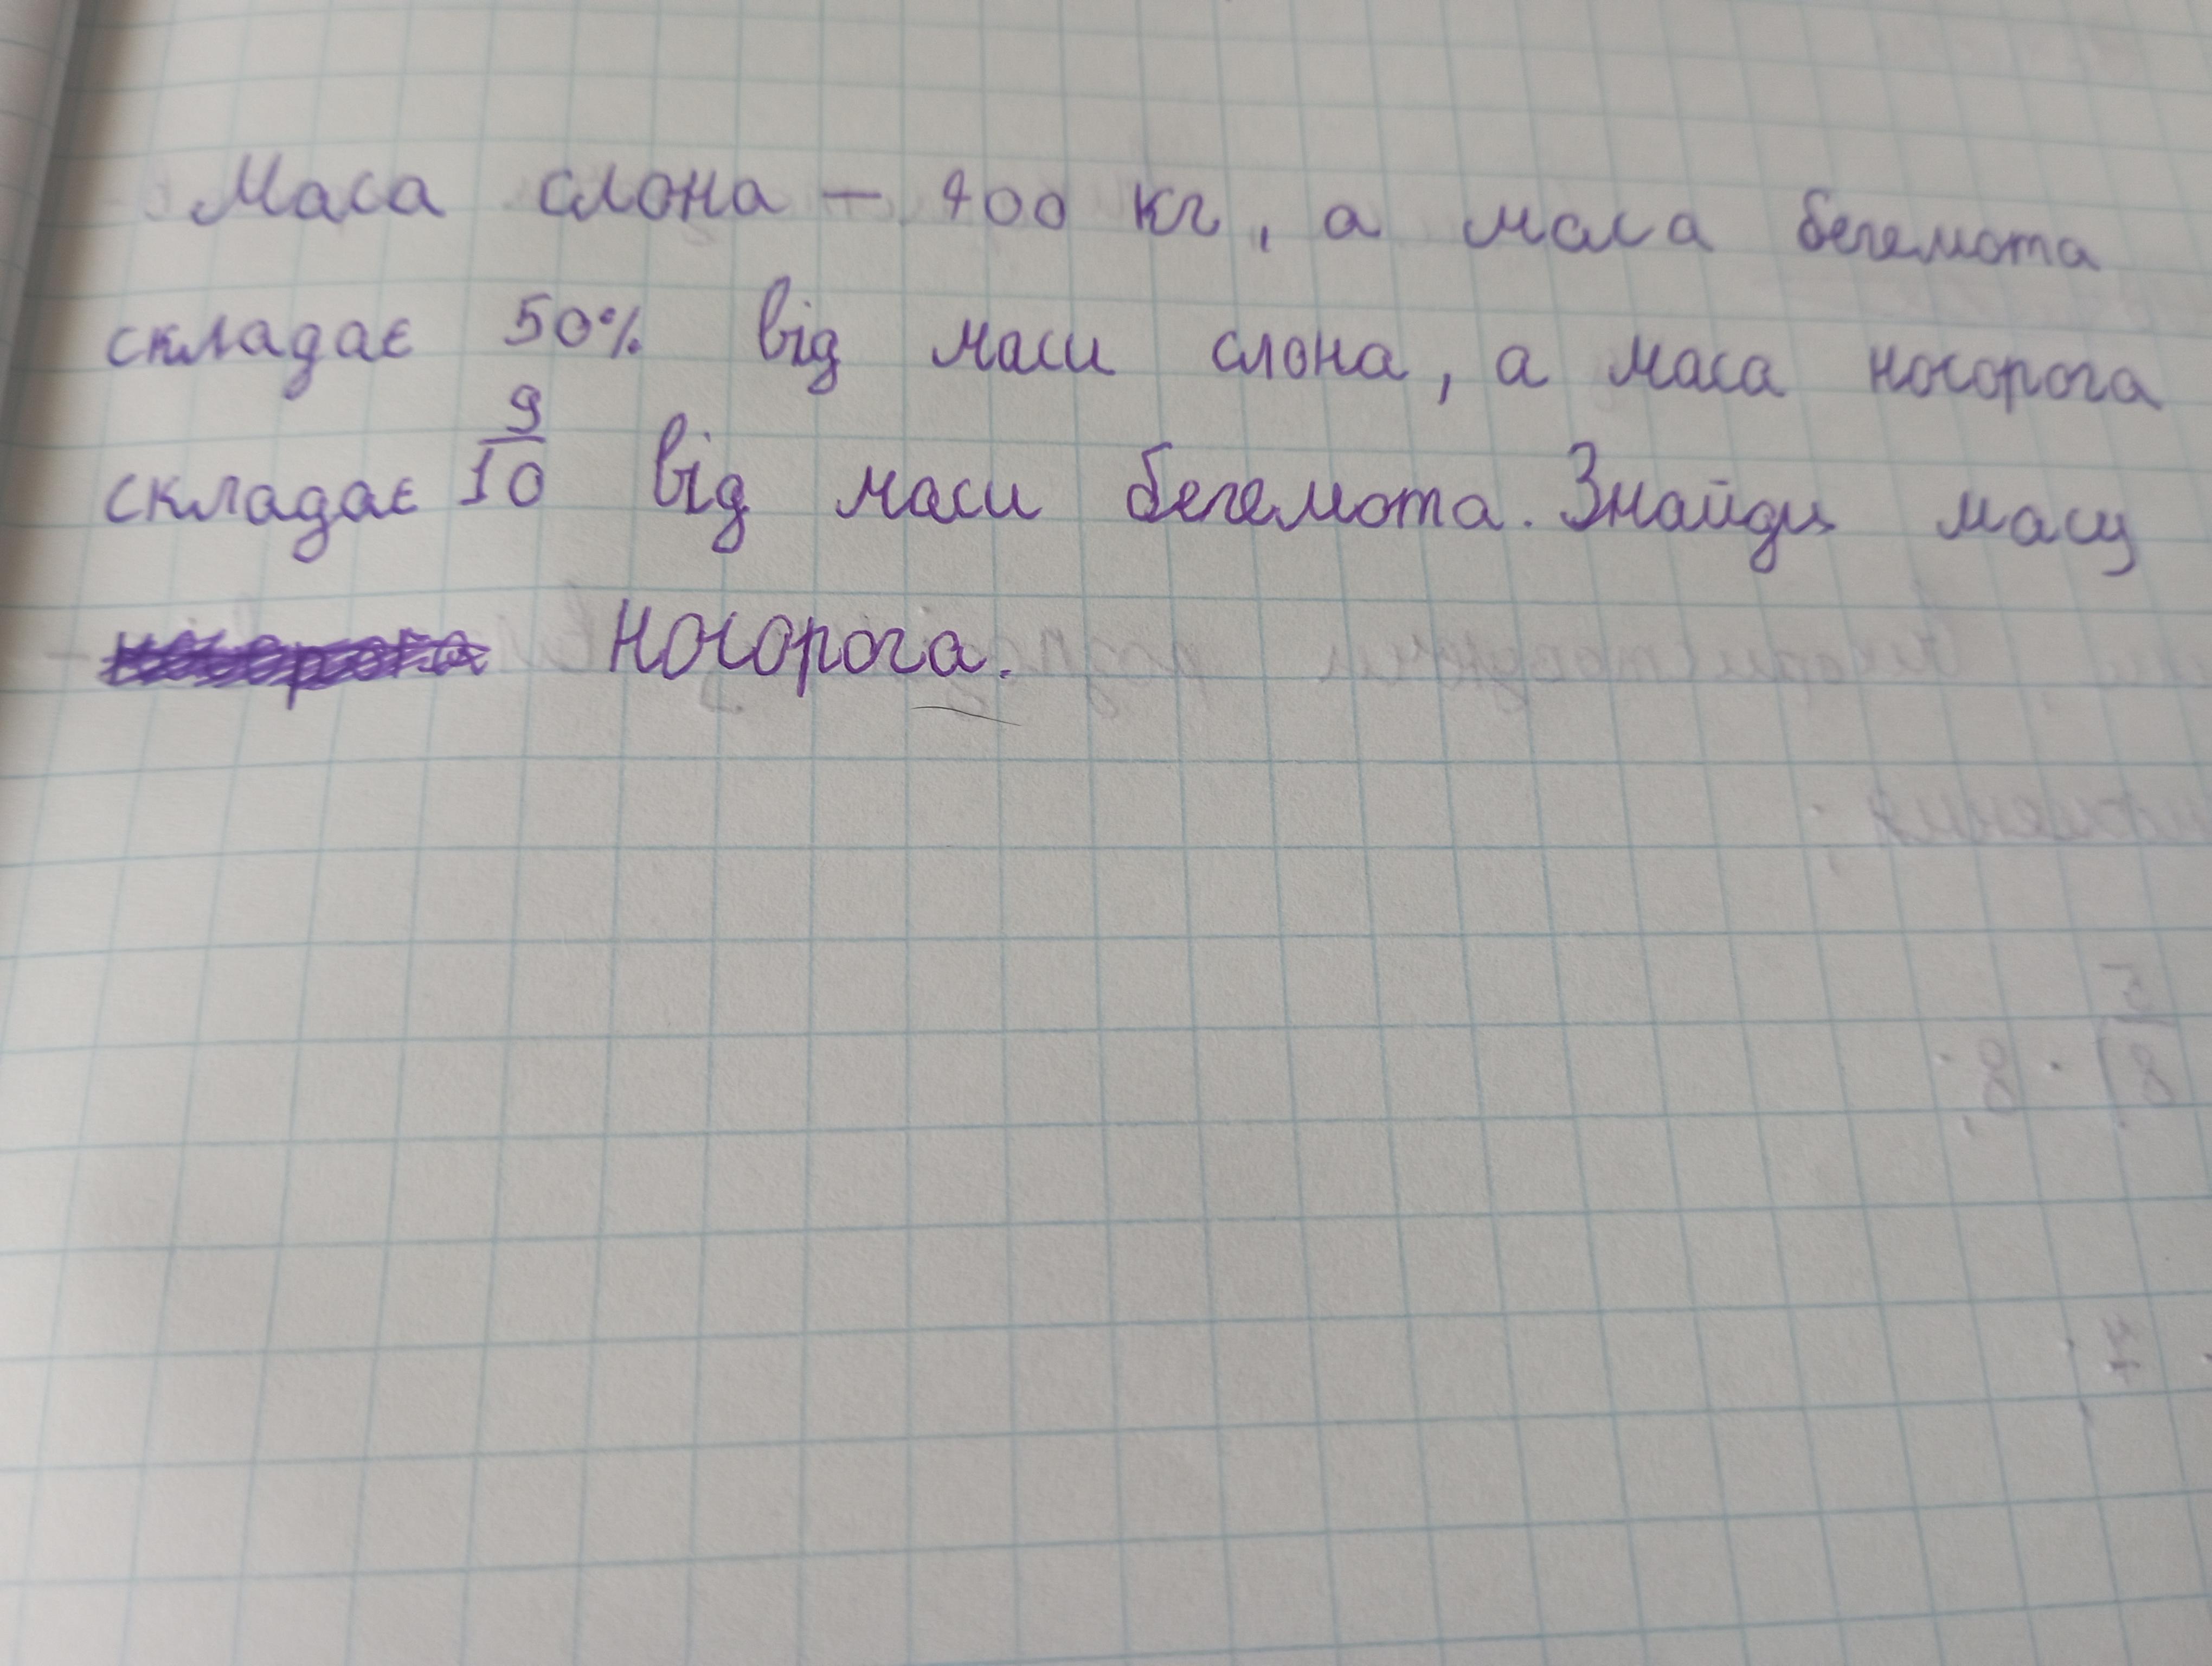 Маса слона – 400 кг, а маса бегемота
складає 50% від маси слона, а маса носорога
складає 9/10 від маси бегемота. Знайди масу
носорога.